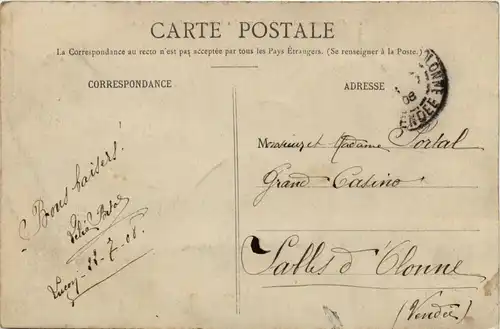 CARTE POSTALE
La Correspondance au recto n'est pas acceptée par tous les Pays Étrangers. (Se renseigner à la Poste.)
CORRESPONDANCE
ADRESSE
OLONNE
08
VENDÉE
Bons baisers!
Luçon - 22-7-08.
Monsieur et Madame Portal
Grand Casino
Salles d'Olonne
(Vendée)